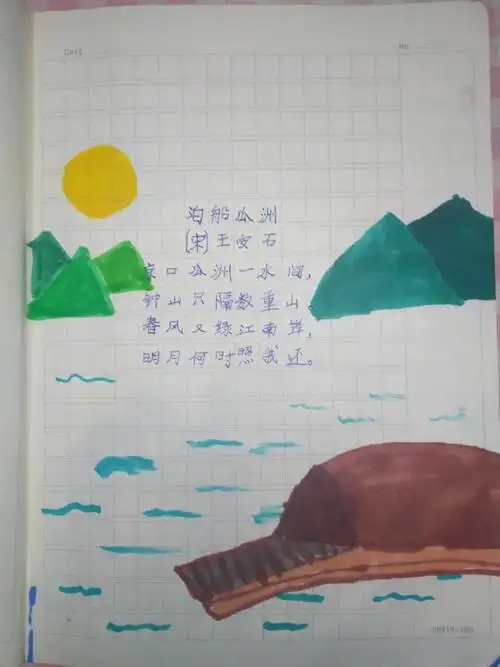 DATE
NO.
泊船瓜洲
[宋]王安石
京口瓜洲一水间，
钟山只隔数重山。
春风又绿江南岸，
明月何时照我还。